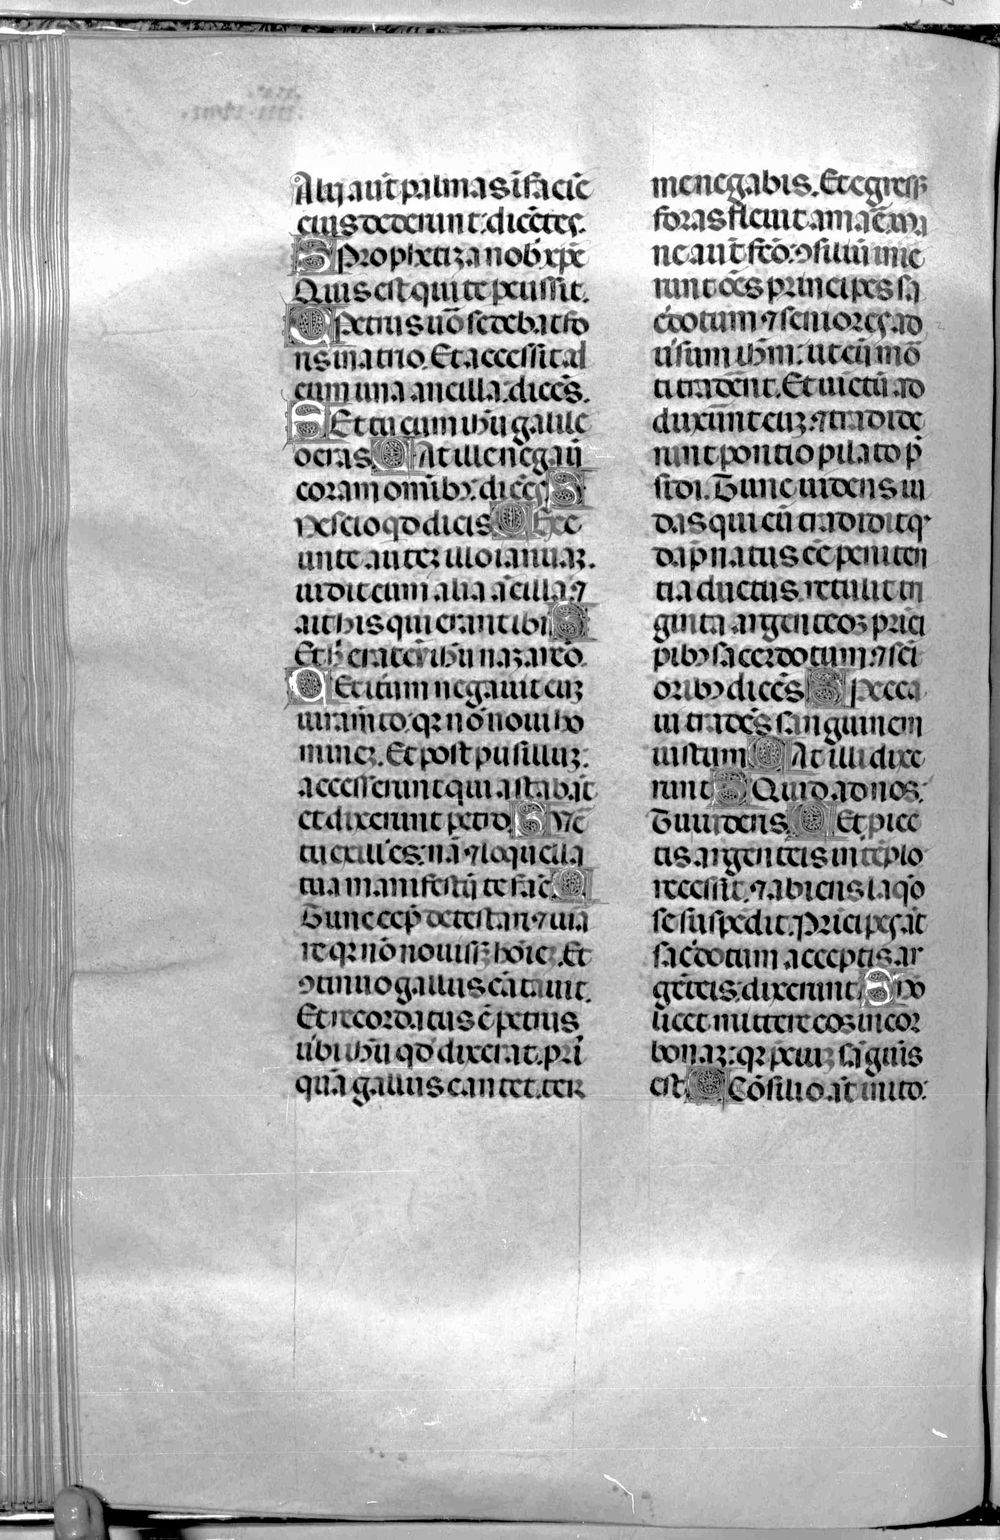 Alij aūt palmas ī faciē
eius dederunt: dicētes.
S Prophetiza nob̄ xp̄e
Quis est qui te pcussit.
C Petrus uō sedebat fo
ris in atrio. Et accessit ad
eum una ancilla: dicēs.
S Et tu cum ihū galile
o eras C At ille negauī
coram omībꝫ: dicēs S
Nescio qd dicis C Exe
unte auteꝫ illo ianuaꝫ.
uidit eum alia ācilla ⁊
ait his qui erant ibi S
Et h̄ erat cū ihū nazareō.
C Et itūm negauit cuꝫ
iuramīto. qꝛ nō noui ho
mineꝫ. Et post pusilluꝫ:
accesserunt qui astabāt
et dixerunt petro S Ve
tu ex ill' es: nā ⁊ loquella
tua manifestū te facē C
Tunc cep̄ detestari ⁊ iura
re qꝛ nō nouissꝫ hoīeꝫ. Et
ꝯtinuo gallus cātauit.
Et recordatus ē petrus
ūbi ihū qd dixerat. pri
quā gallus cantet. ter
me negabis. Et egress
foras fleuit amaē. Ma
ne aūt fcō: ꝯsiliū inie
runt oēs principes sa
c̄dotum ⁊ seniores ad
uīsum ihm: ut eū mō
ti traderēt. Et uictū ad
duxerūnt euꝫ. ⁊ tradide
runt pontio pilato p̄
sidi. Tunc uidens iu
das qui eū tradidit q
dapnatus eēt peniten
tia ductus. retulit tri
ginta argenteos prīci
pibꝫ sacerdotum. ⁊ sēi
oribꝫ dicēs S Pecca
ui tradēs sanguinem
iustum C At illi dixe
runt S Quid ad nos:
Tu uidens. C Et piec
tis argenteis in tēplo
recessit. ⁊ abiens laqo
se suspēdit. Prīcipes āt
sac̄dotum acceptis ar
gēteis. dixerunt S No
licet mittere eos in cor
bonaꝫ: qꝛ pciuꝫ sāguis
est C Cōsilio āt inito: